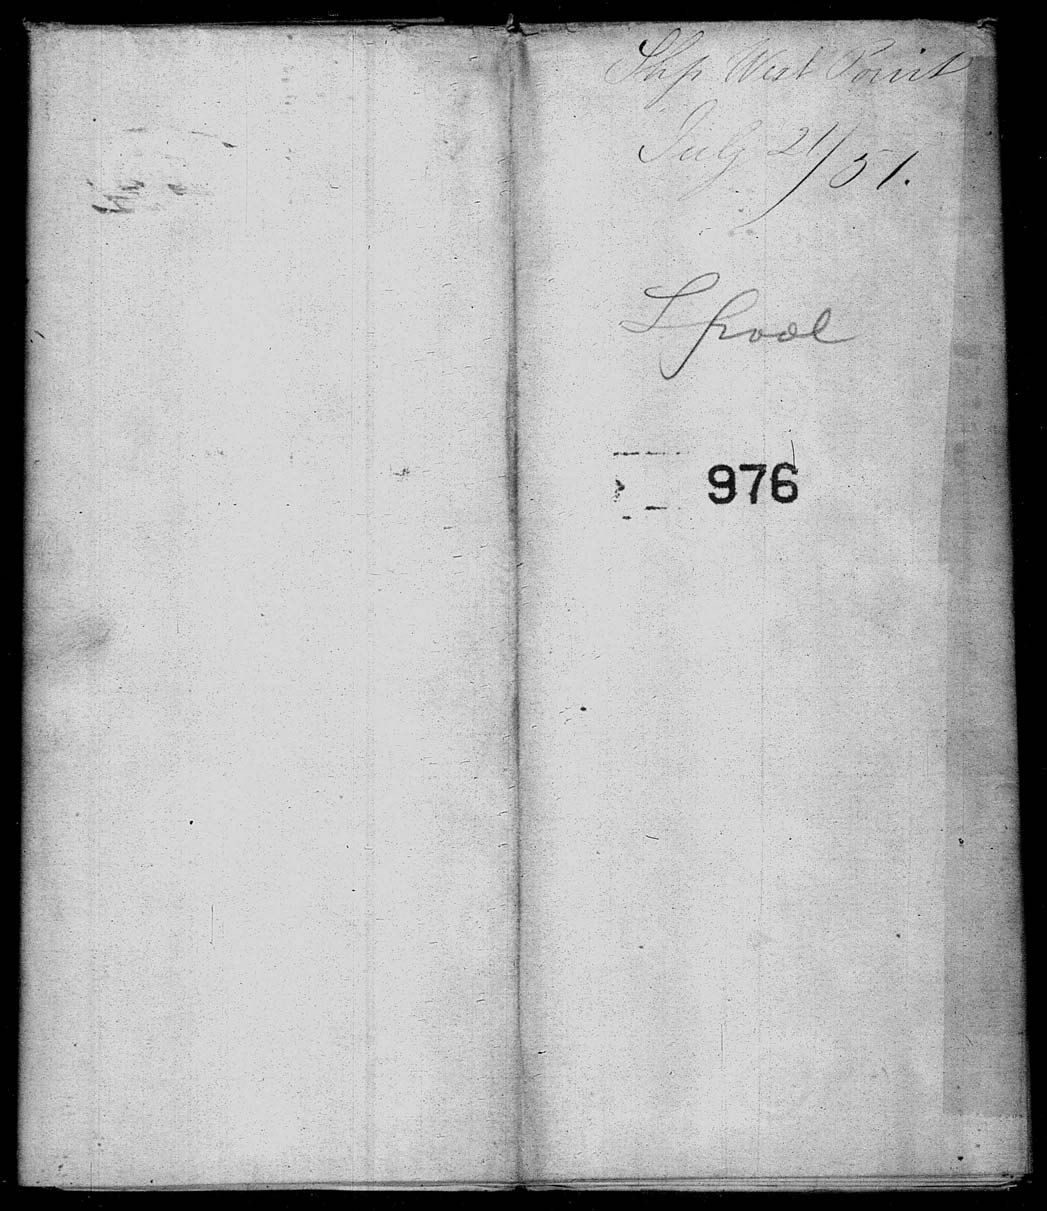 Ship West Point
July 21/51.
L pool
976